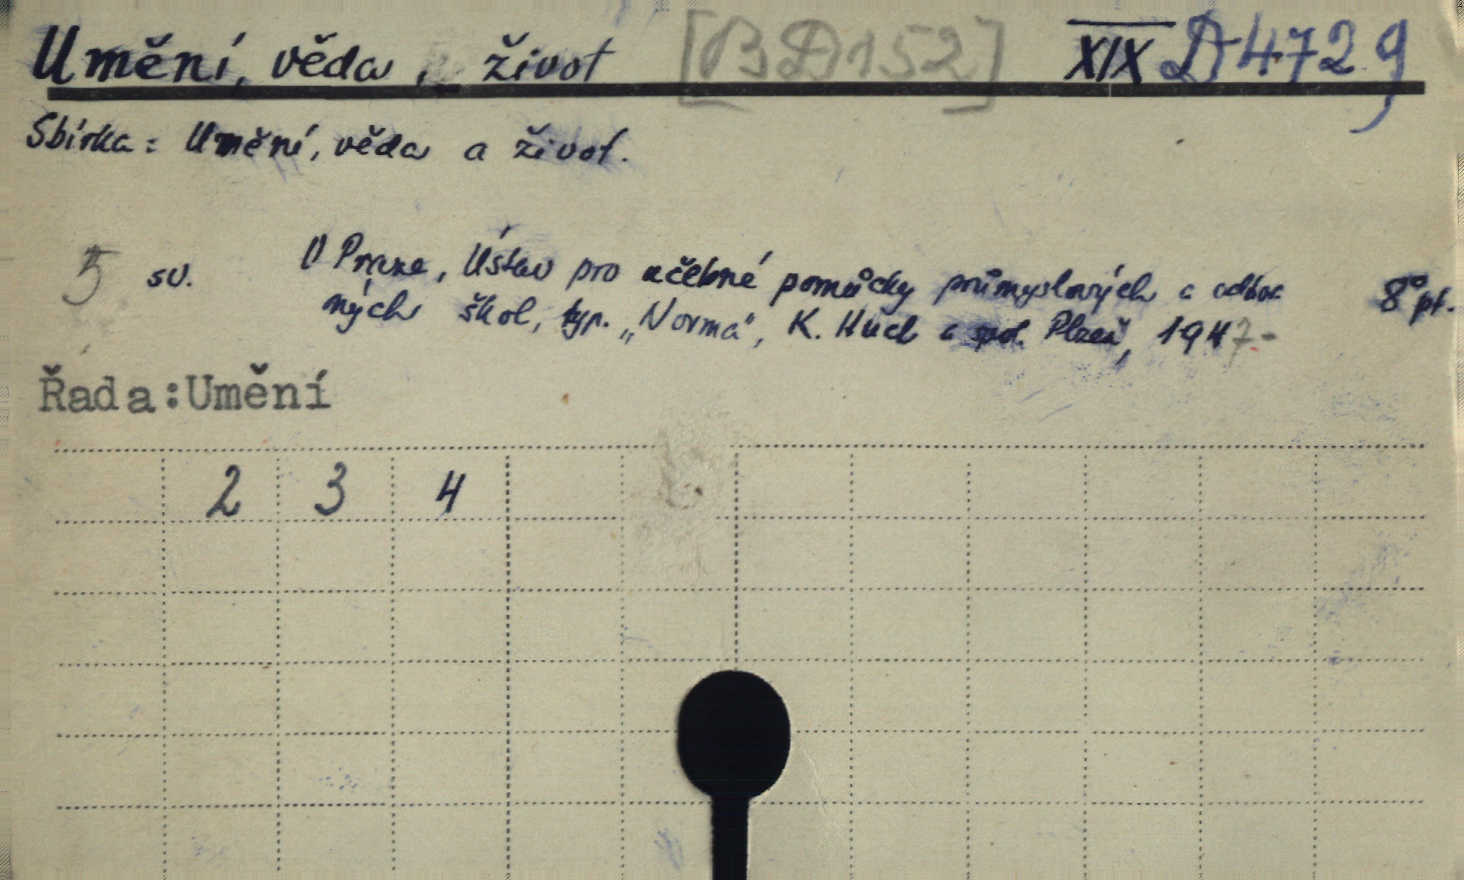 Umění, věda, život [BD152] XIX D 4729
Sbírka: Umění, věda a život.
5 sv. V Praze, Ústav pro učebné pomůcky průmyslových a odbor 8° pf.
ných škol, typ. „Norma", K. Hucl a spol. Plzeň, 1947-
Řada:Umění
2 3 4